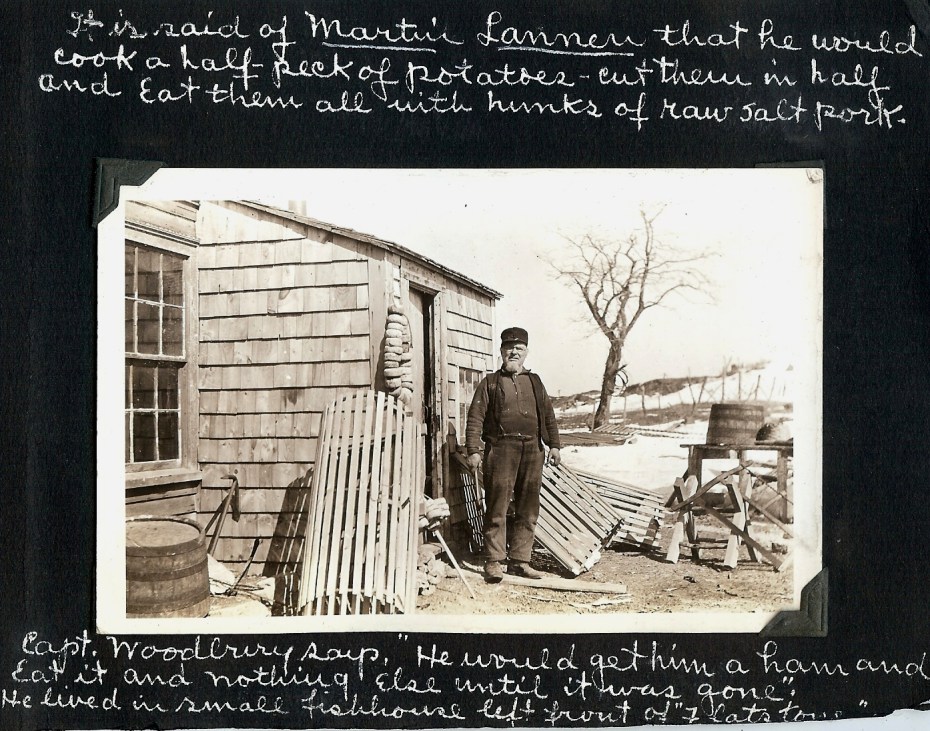 It is said of Martin Lannen that he would
cook a half-peck of potatoes - cut them in half
and Eat them all with hunks of raw salt pork.
Capt. Woodbury says, "He would get him a ham and
Eat it and nothing Else until it was gone".
He lived in small fishhouse left front of "Flatstone"